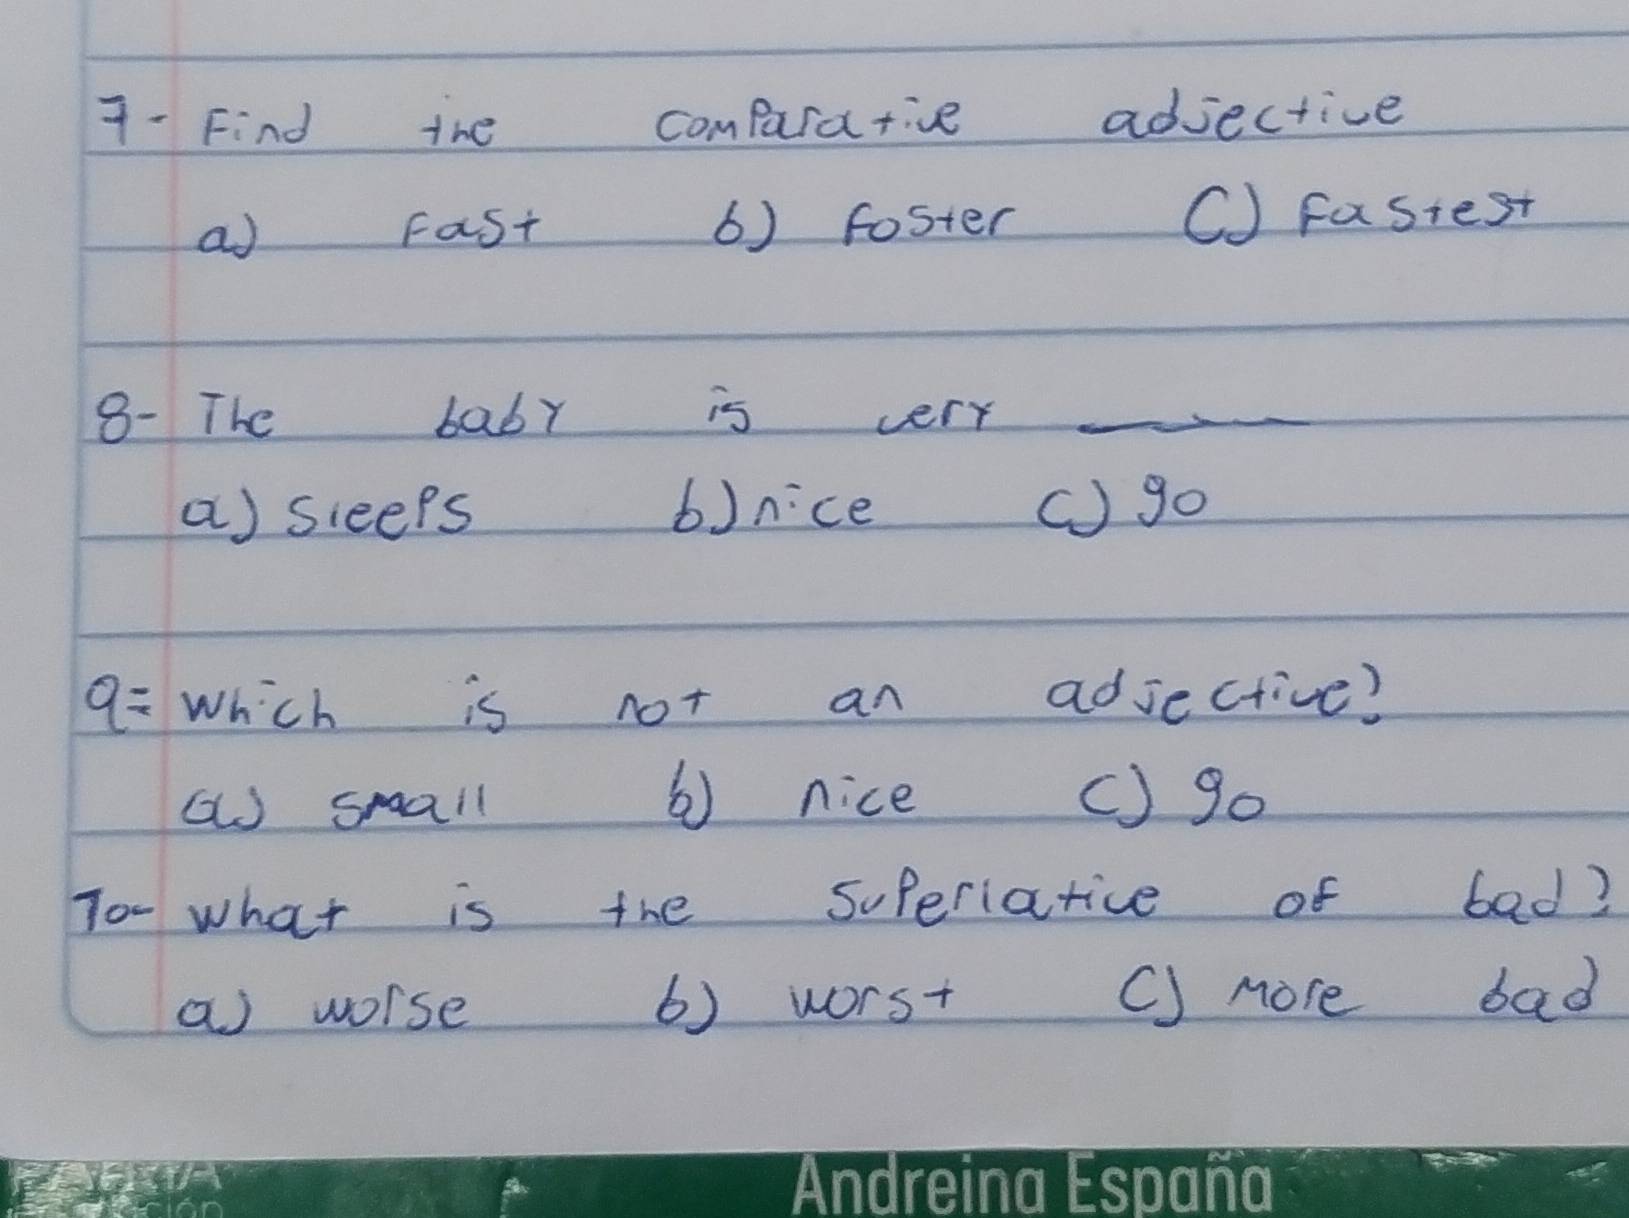 7- Find the comParative adjective
a) Fast b) Foster C) Fastest
8- The baby is very ___
a) sleePs b) nice c) go
9= which is not an adjective?
a) small b) nice c) go
10- what is the suPerlative of bad?
a) worse b) worst C) More bad
Andreina España